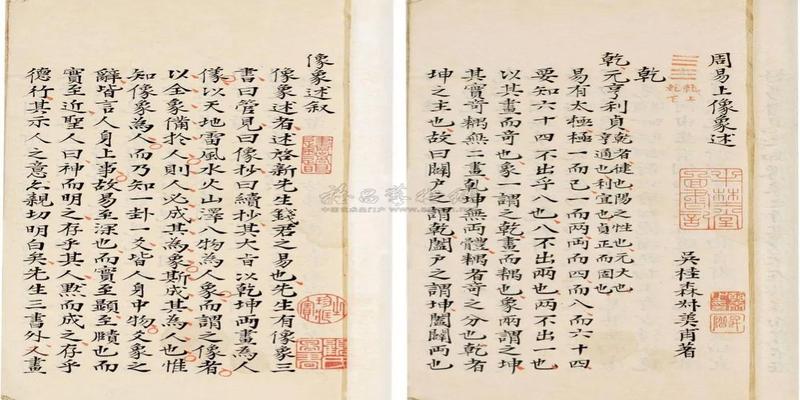 像象述叙
像象述者述啓新先生錢君之易也先生有像象三
書曰管見曰像抄曰續抄其大肯以乾坤兩畫為人
㨾以天地雷風水火山澤八物為人象而謂之像者
以全象備於人則人必成其為象斯成其為人也惟
知像象為人而乃知一卦一爻皆人身中物爻象之
辭皆言人身上事故易至深也而實至顯至賾也而
實至近聖人曰神而明之存乎其人默而成之存乎
德行其示人之意亦親切明白矣先生三書外人畫
周易上像象述
吳桂森叔美甫著
乾上
乾下
乾
乾元亨利貞乾者健也陽之性也元大也
亨通也利宜也貞正而固也
易有太極極一而已一而兩兩而四而八而六十四
要知六十四不出乎八也八不出兩也兩不出一也
以其畫而奇也象一謂之乾畫而耦也象兩謂之坤
其實奇耦無二畫乾坤無兩體耦者奇之分也乾者
坤之主也故曰闢戶之謂乾闔戶之謂坤闔闢兩也